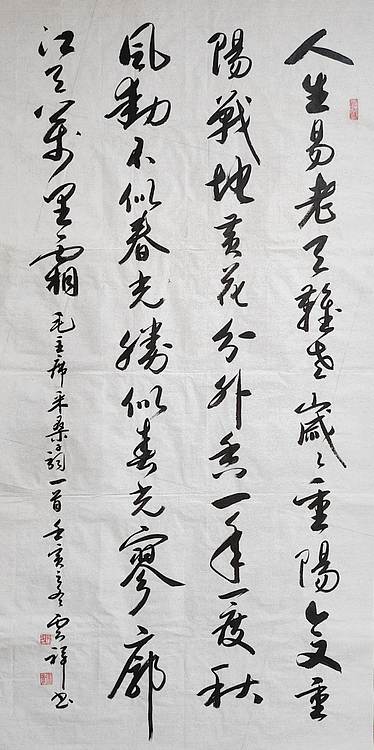 人生易老天難老歲々重陽今又重
陽戰地黃花分外香一年一度秋
風勁不似春光勝似春光寥廓
江天萬里霜 毛主席采桑子詞一首壬寅之冬雲祥書